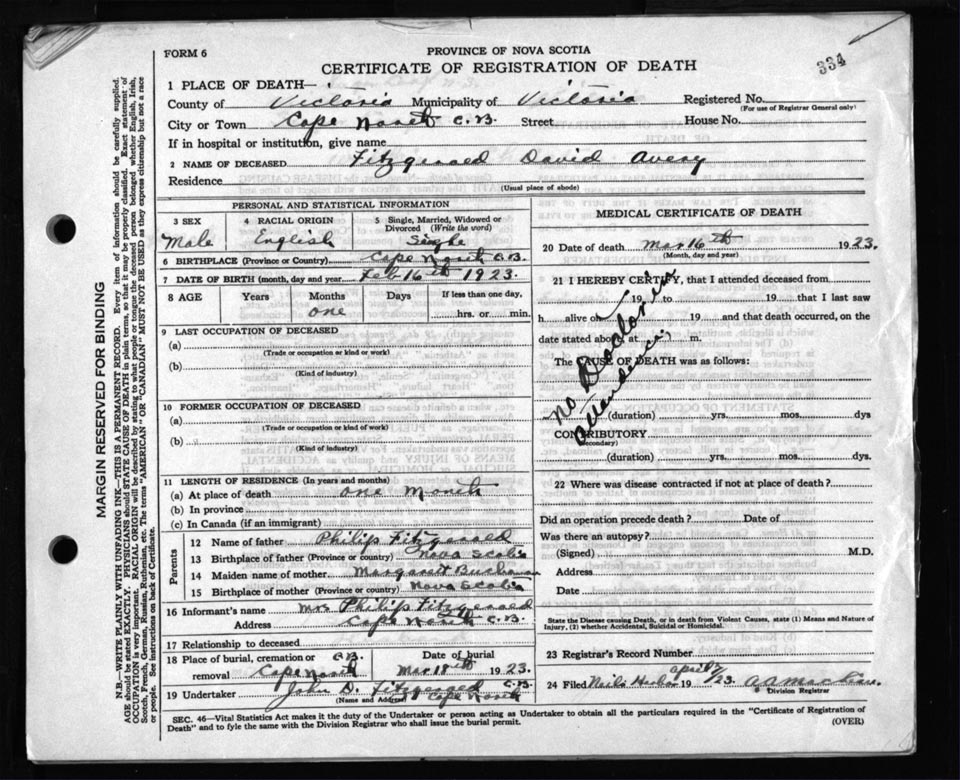 FORM 6
PROVINCE OF NOVA SCOTIA
CERTIFICATE OF REGISTRATION OF DEATH
334
1 PLACE OF DEATH—
County of Victoria Municipality of Victoria Registered No.
(For use of Registrar General only)
City or Town Cape North C.B. Street House No.
If in hospital or institution, give name
2 NAME OF DECEASED Fitzgerald David Avery
Residence
(Usual place of abode)
PERSONAL AND STATISTICAL INFORMATION
3 SEX 4 RACIAL ORIGIN 5 Single, Married, Widowed or Divorced (Write the word)
Male English Single
6 BIRTHPLACE (Province or Country) Cape North C.B.
7 DATE OF BIRTH (month, day and year) Feb 16th 1923.
8 AGE Years Months Days If less than one day,
one hrs. or min.
9 LAST OCCUPATION OF DECEASED
(a)
(Trade or occupation or kind or work)
(b)
(Kind of industry)
10 FORMER OCCUPATION OF DECEASED
(a)
(Trade or occupation or kind of work)
(b)
(Kind of industry)
11 LENGTH OF RESIDENCE (In years and months)
(a) At place of death one Month
(b) In province
(c) In Canada (if an immigrant)
Parents
12 Name of father Philip Fitzgerald
13 Birthplace of father (Province or country) Nova Scotia
14 Maiden name of mother Margaret Buchanan
15 Birthplace of mother (Province or country) Nova Scotia
16 Informant's name Mrs Philip Fitzgerald
Address Cape North C.B.
17 Relationship to deceased
18 Place of burial, cremation or removal C.B. Cape North Date of burial Mar 18th 1923.
19 Undertaker John D. Fitzgerald C.B. Cape North
(Name and Address)
MEDICAL CERTIFICATE OF DEATH
20 Date of death Mar 16th 1923.
(Month, day and year)
21 I HEREBY CERTIFY, that I attended deceased from
19 to 19 that I last saw
h alive on 19 and that death occurred, on the
date stated above at m.
The CAUSE OF DEATH was as follows:
no Doctor in attendance
(duration) yrs. mos. dys
CONTRIBUTORY
(Secondary)
(duration) yrs. mos. dys.
22 Where was disease contracted if not at place of death?
Did an operation precede death? Date of
Was there an autopsy?
(Signed) M.D.
Address
Date
State the Disease causing Death, or in death from Violent Causes, state (1) Means and Nature of Injury, (2) whether Accidental, Suicidal or Homicidal.
23 Registrar's Record Number
24 Filed Neils Harbor april 2 1923.
Division Registrar
SEC. 46—Vital Statistics Act makes it the duty of the Undertaker or person acting as Undertaker to obtain all the particulars required in the "Certificate of Registration of
Death" and to fyle the same with the Division Registrar who shall issue the burial permit.
(OVER)
MARGIN RESERVED FOR BINDING
N.B.—WRITE PLAINLY WITH UNFADING INK—THIS IS A PERMANENT RECORD. Every item of information should be carefully supplied.
AGE should be stated EXACTLY. PHYSICIANS should STATE CAUSE OF DEATH in plain terms, so that it may be properly classified. Exact statement of
OCCUPATION is very important. RACIAL ORIGIN will be described by stating to what people or tongue the deceased person belonged whether English, Irish,
Scotch, French, German, Russian, Ruthenian, etc. The terms "AMERICAN" OR "CANADIAN" MUST NOT BE USED as they express citizenship but not a race
or people. See instructions on back of Certificate.